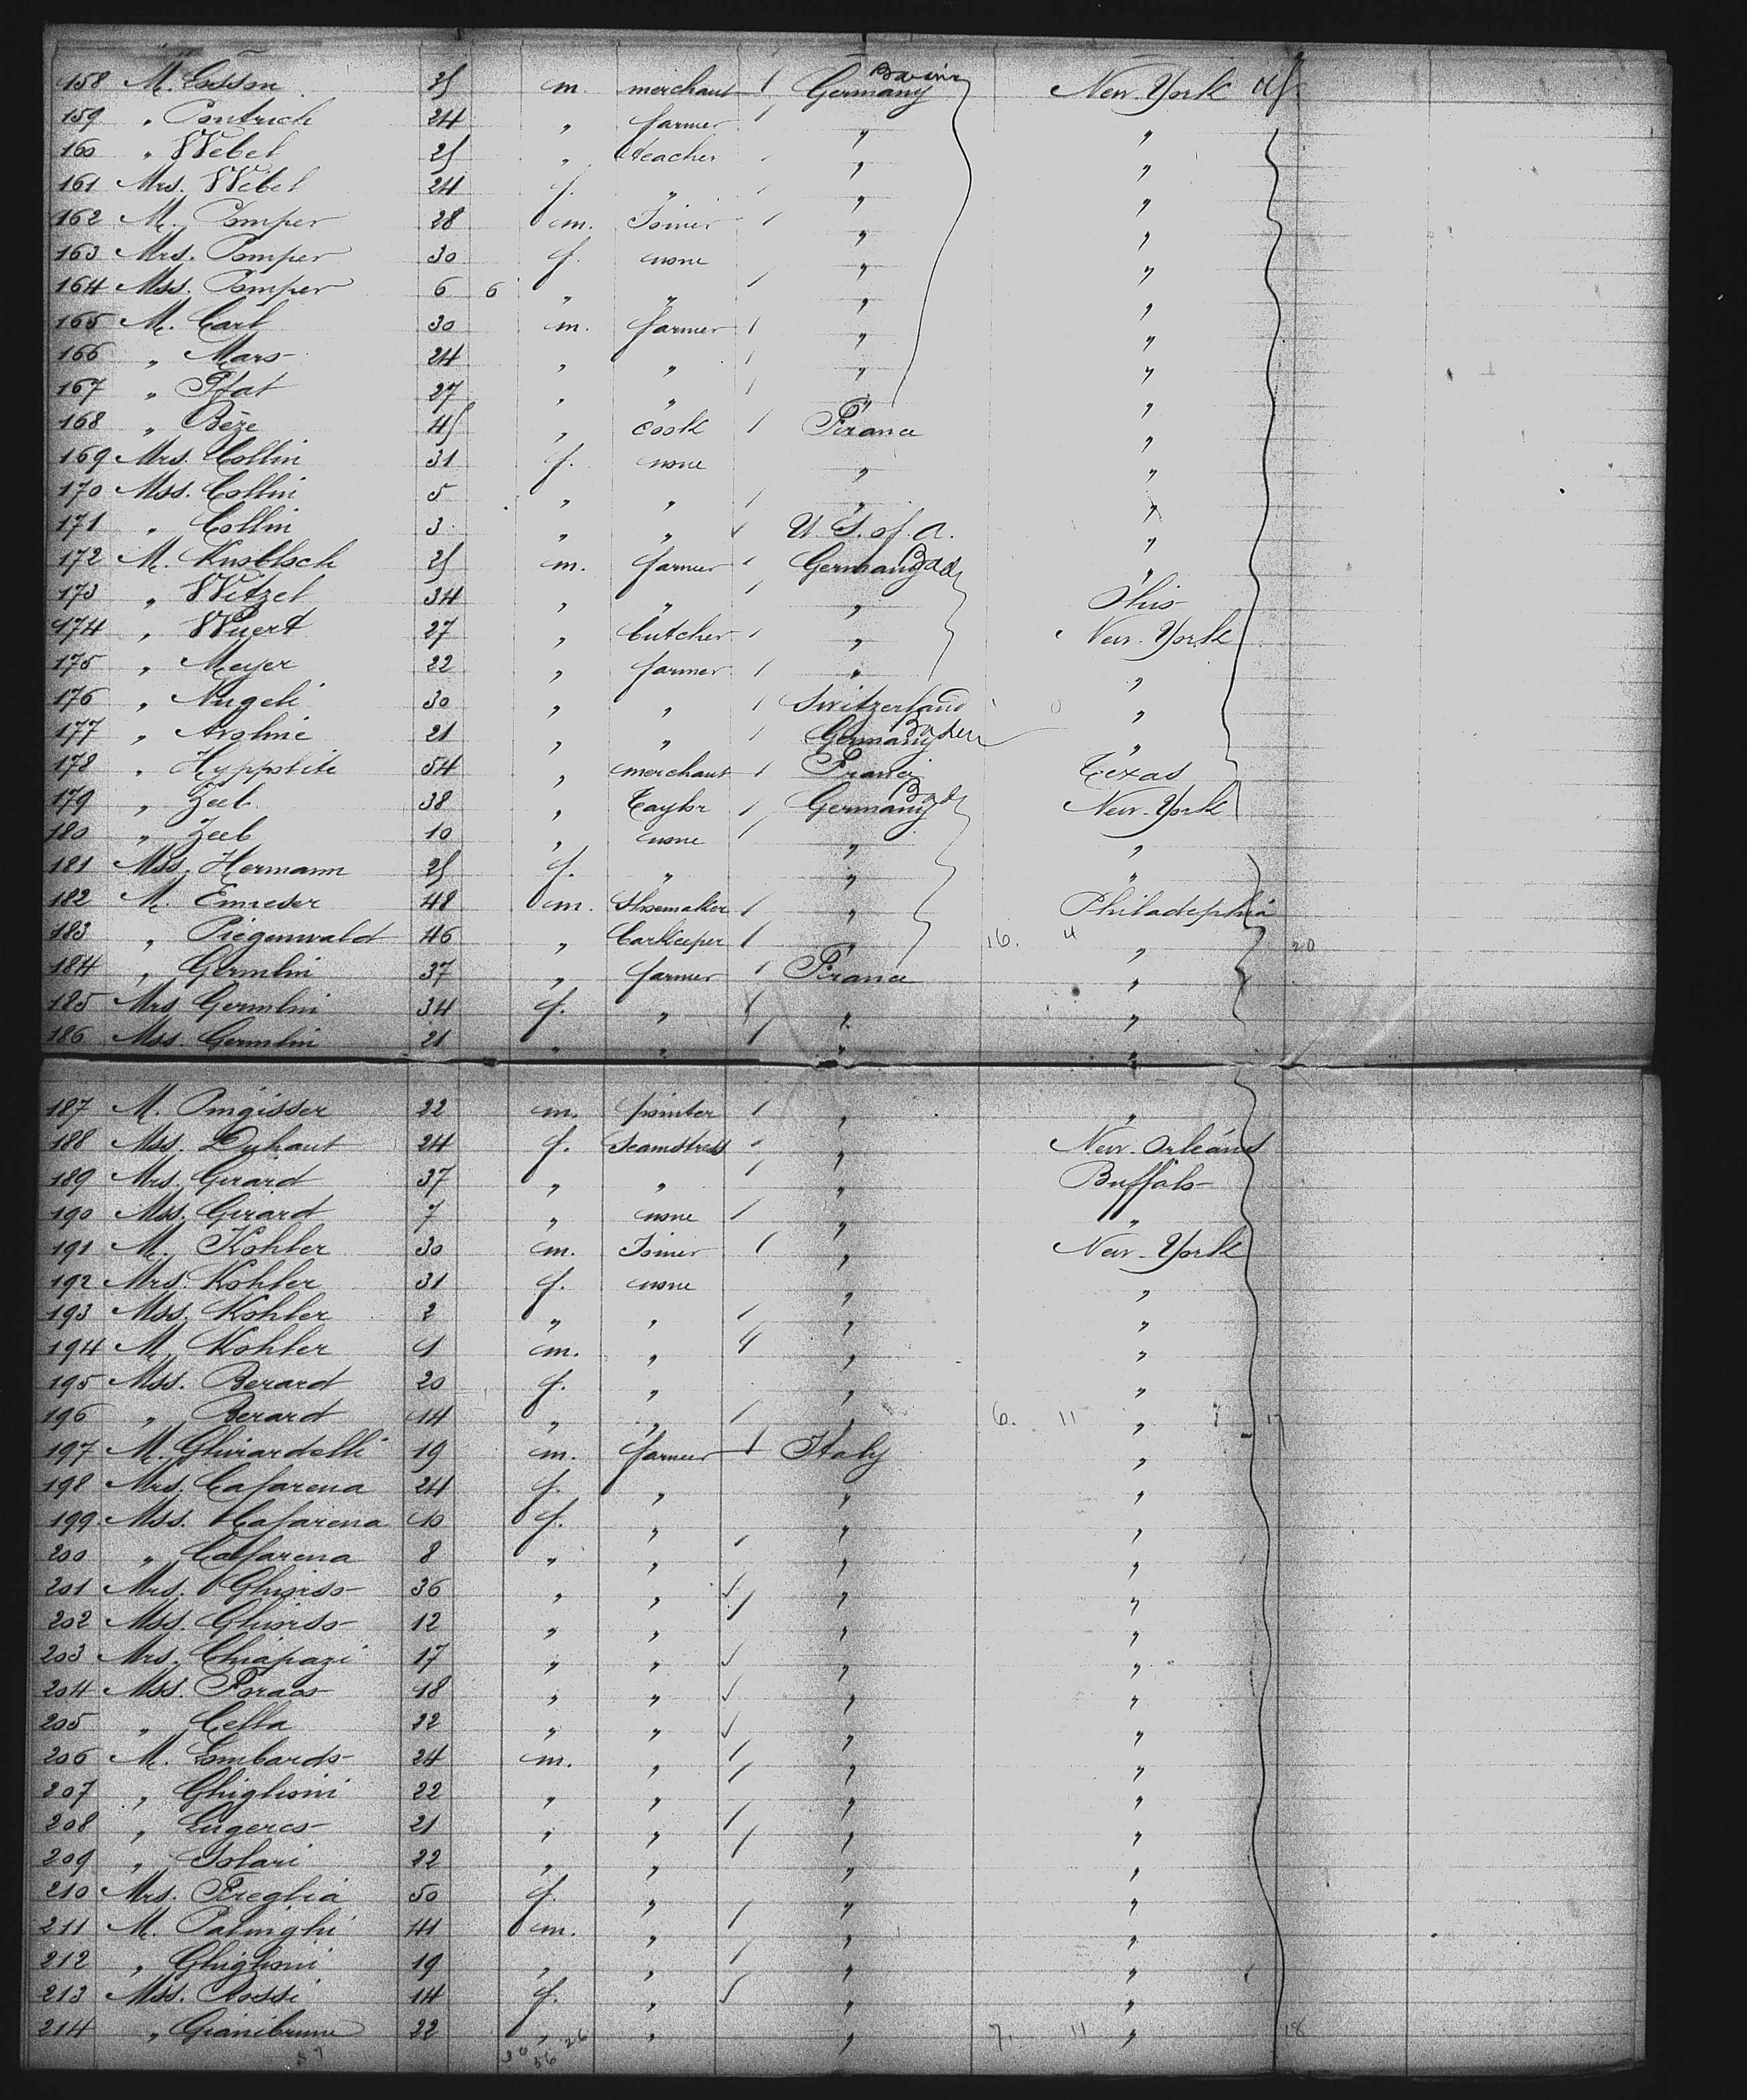 158 M. Gesson 25 m merchant 1 Germany Bavaria New-York
159 " Pontrich 24 " farmer " "
160 " Webel 25 " teacher " "
161 Mrs. Webel 24 f. " " "
162 M. Pomper 28 m. Joiner " "
163 Mrs. Pomper 30 f. none " "
164 Mss. Pomper 6 6 " " " "
165 M. Carl 30 m. farmer 1 " "
166 " Mars 24 " " " "
167 " Pfat 27 " " " "
168 " Bèze 45 " cook 1 France "
169 Mrs. Collin 31 f. none " "
170 Mss. Collin 5 " " " "
171 " Collin 3 " " U. S. of. A. "
172 M. Knoblsch 25 m. farmer Germany Bad "
173 " Witzel 34 " " " Ohio
174 " Wuert 27 " butcher " New-York
175 " Meyer 22 " farmer 1 " "
176 " Nugeli 30 " " 1 Switzerland "
177 " Aroline 21 " " Germany Baden "
178 " Hyppolite 54 " merchant 1 France Texas
179 " Zeeb 38 " Taylor 1 Germany Bad New-York
180 " Zeeb 10 " none " "
181 Mss. Hermann 25 f. " " "
182 M. Emreder 48 m. Shoemaker 1 " Philadephia
183 " Piegenwald 46 " barkeeper 1 " 16. 4 " 20
184 " Germlin 37 " farmer 1 France "
185 Mrs. Germlin 34 f. " " "
186 Mss. Germlin 21 " " " "
187 M. Pmgisser 22 m. painter 1 " "
188 Mss. Duhaut 24 f. Seamstress " New-Orleans
189 Mrs. Girard 37 " " " Buffalo
190 Mss. Girard 7 " none 1 " "
191 M. Kohler 30 m. Joiner 1 " New-York
192 Mrs. Kohler 31 f. none " "
193 Mss. Kohler 2 " " " "
194 M. Kohler 1 m. " " "
195 Mss. Berard 20 f. " " "
196 " Berard 14 " " " 6. 11 " 17
197 M. Ghirardelli 19 m. farmer 1 Italy "
198 Mrs. Cafarena 24 f. " " "
199 Mss. Cafarena 10 f. " " "
200 " Cafarena 8 " " " "
201 Mrs. Ghiorso 36 " " " "
202 Mss. Ghiorso 12 " " " "
203 Mrs. Chiapazi 17 " " " "
204 Mss. Foraos 18 " " " "
205 " Cella 22 " " " "
206 M. Lombardo 24 m. " " "
207 " Ghiglioni 22 " " " "
208 " Lugerco 21 " " " "
209 " Solari 22 " " " "
210 Mrs. Fireglia 50 f. " " "
211 M. Palmghi 14 m. " " "
212 " Ghiglioni 19 " " " "
213 Mss. Rossi 14 f. " " "
214 " Gianibrune 22 " " " 7. 11 " 18
57 30 56 26